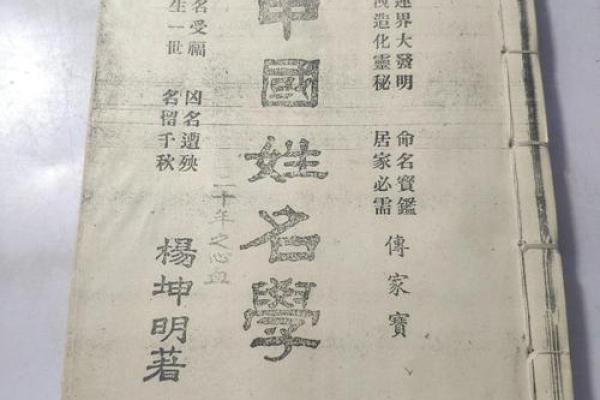 運界大發明
造化靈秘
命名寶鑑
居家必需
傳家寶
中國姓名學
二十年之心血
名受福
生一世
凶名遭殃
名留千秋
楊坤明著